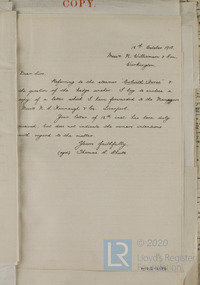 COPY.
14th October 1911.
Messrs R. Williamson & Son,
Workington.
Dear Sirs,
Referring to the steamer
the question of the bulge I beg to enclose
copy of a letter which I have forwarded to the Managers
Messrs & Co Liverpool.
Your letter of 12th inst has been duly
received, but does not indicate the owners intentions
with regard to the matter.
Yours faithfully,
(sgd) Thomas
© 2020
Lloyd's Register
Foundation